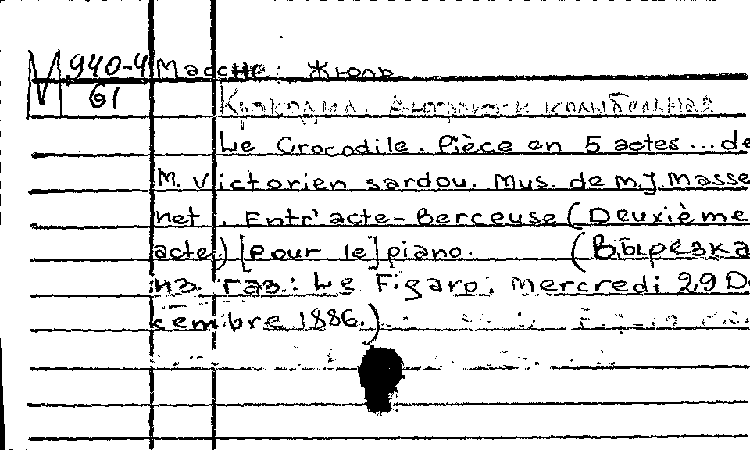 М 940-4 Массне, Жюль
61 Крокодил. Антракт-колыбельная
Le Crocodile. Pièce en 5 actes... de
M. Victorien sardou. Mus. de M.J. Masse
net. Entr'acte-Berceuse (Deuxième
acte) [pour le] piano. (Вырезка
из газ.: Le Figaro; mercredi 29 De
cembre 1886.)